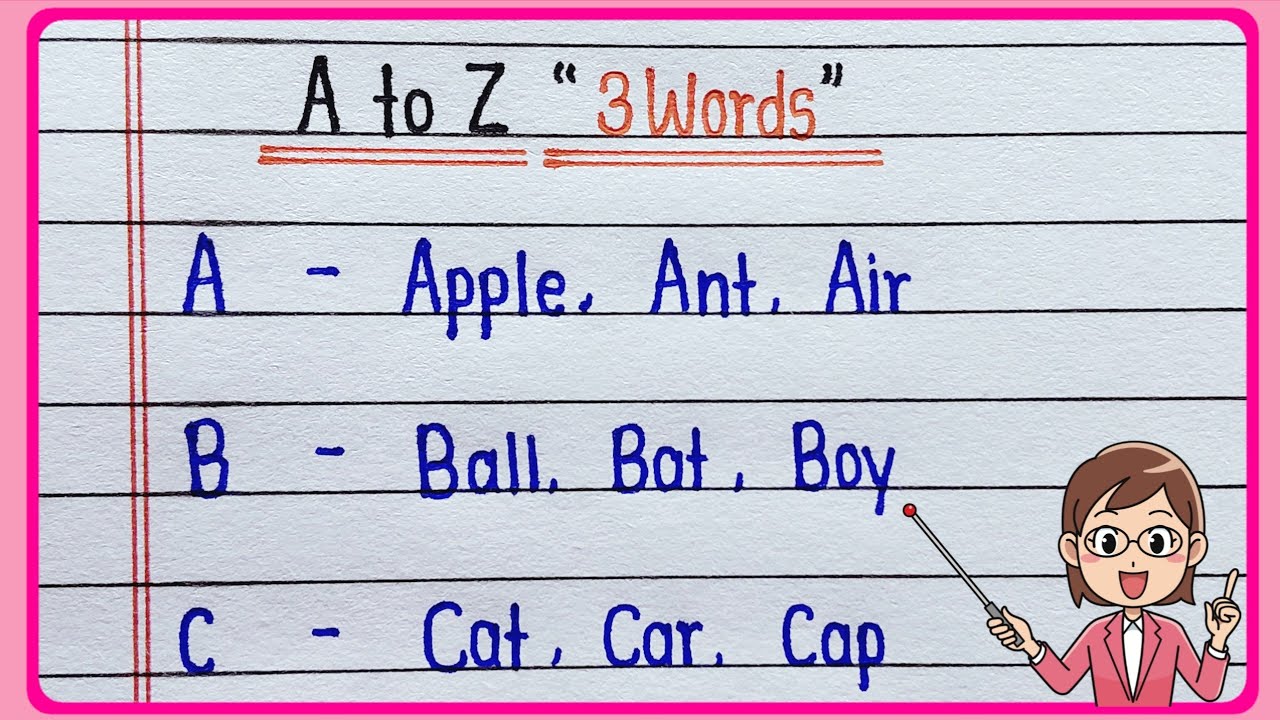 A to Z "3 Words"
A - Apple, Ant, Air
B - Ball, Bat, Boy
C - Cat, Car, Cap